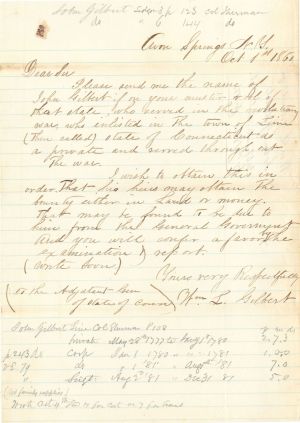 John Gilbert 3 p 123 Col Sherman
do 6 do
Avon Springs N.Y.
Oct 1st
Dear Sir
Please send me the name of
John Gilbert if on your muster roll of
that state who served in the revolutionary
war, who enlisted in the town of
(then called) state of Connecticut as
a private and served through out
the war.
I wish to obtain this in
order That his heirs may obtain the
bounty either in Land or money.
That may be found to be due to
him from the General Government
And you will confer a favor by
examination & report.
(write soon)
Yours very Respectfully
(To the Adjutant Gen
of state of Conn)
Wm. L. Gilbert
John Gilbert Col Sherman P 108
Private May 28th 1777 to 1780 2.7.3
Corp Jan 1 1780 1781
Sergt. '81 Dec 31 81 5.0
Wrote Oct 4th